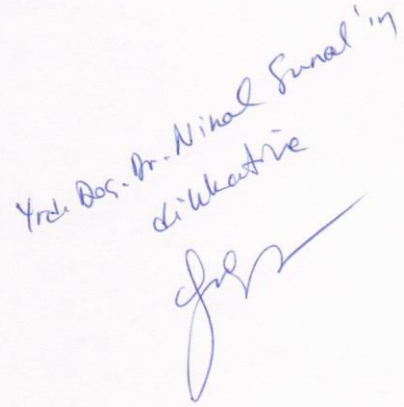 Yrd. Doç. Dr. Nihal Sunal'ın
dikkatine